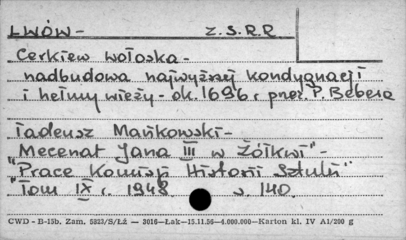 LWÓW - Z.S.R.R
Cerkiew wołoska -
nadbudowa najwyższej kondygnacji
i hełmy wieży - ok. 1696 r przez P. Bebera
Tadeusz Mańkowski -
"Mecenat Jana III w Żółkwi" -
"Prace Komisji Historii Sztuki"
"Tom IX r. 1948 s. 140.
CWD - B-15b. Zam. 5823/S/Łż — 3016—Łak—15.11.56—4.000.000—Karton kl. IV A1/200 g